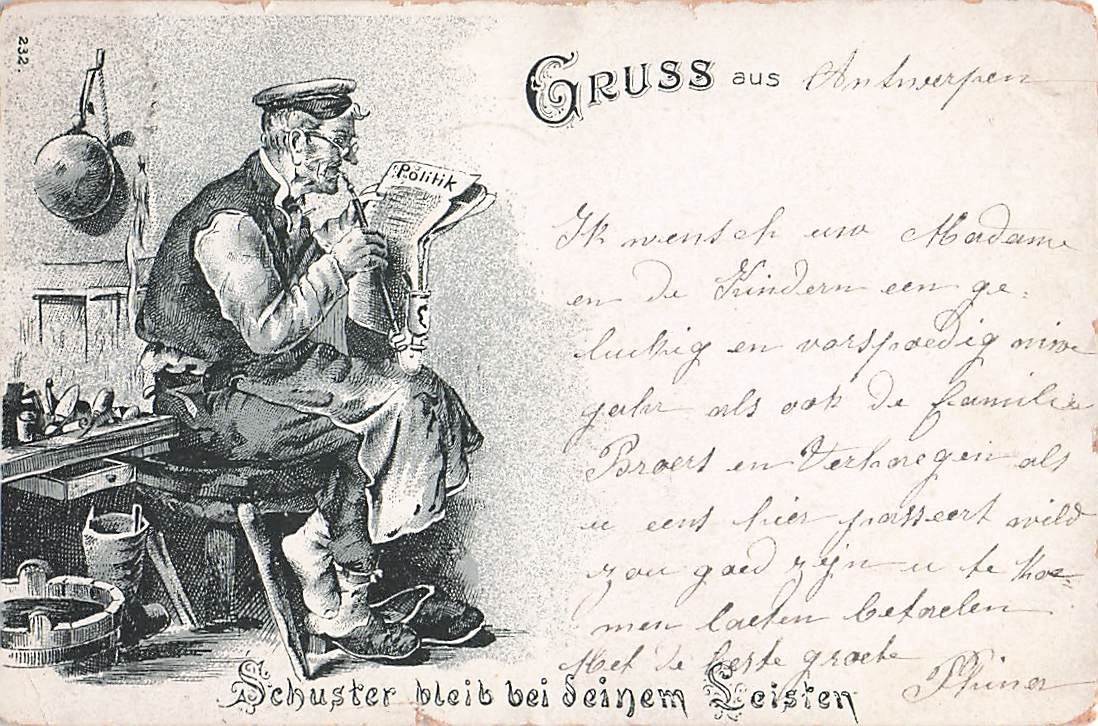 232.
GRUSS aus Antwerpen
Politik
Ik wensch uw Madame
en de Kindern een ge-
luckig en vorspoedig niw
jahr als ook de familie
en Verhaegen als
u eens hier passeert wild
zou goed zijn u te
men laeten betaelen
Met de beste groete
Schuster bleib bei deinem Leisten